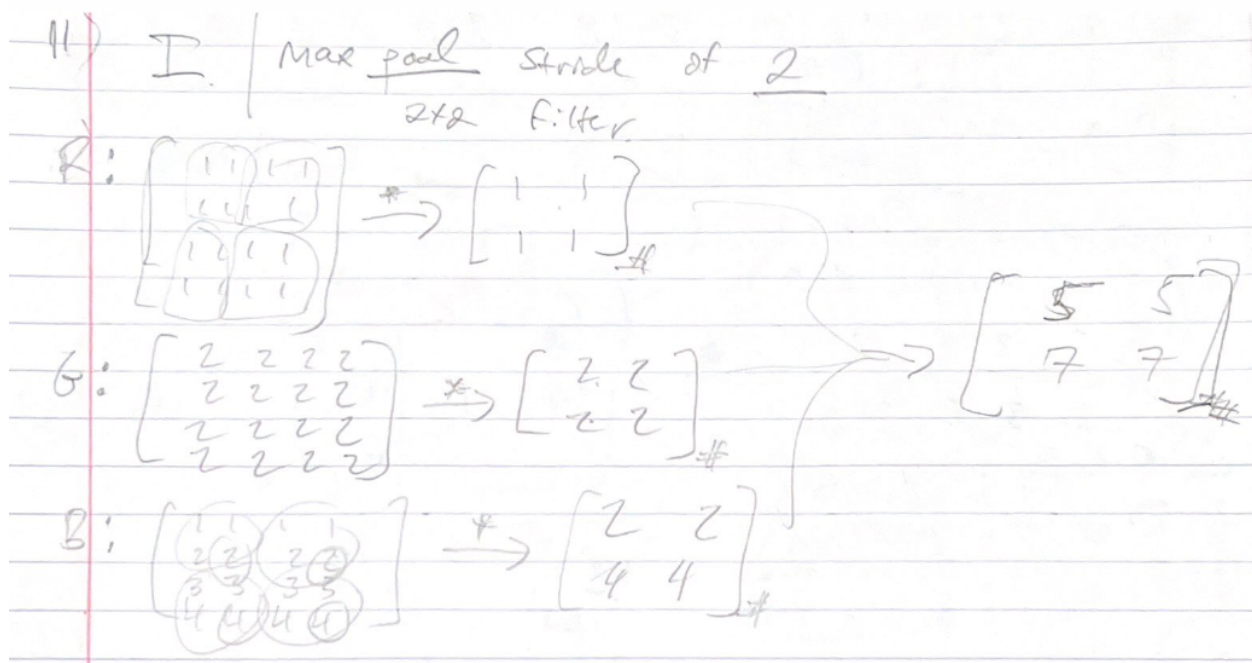 11) I. Max pool stride of 2
2x2 filter
R: [ 1 1 1 1 * → [ 1 1
1 1 1 1
1 1 1 1 1 1 ] #
1 1 1 1 ]
[ 5 5
7 7 ] #
G: [ 2 2 2 2 * → [ 2 2
2 2 2 2 2 2 ] #
2 2 2 2
2 2 2 2 ]
B: [ 1 1 1 1 * → [ 2 2
2 2 2 2 4 4 ] #
3 3 3 3
4 4 4 4 ]